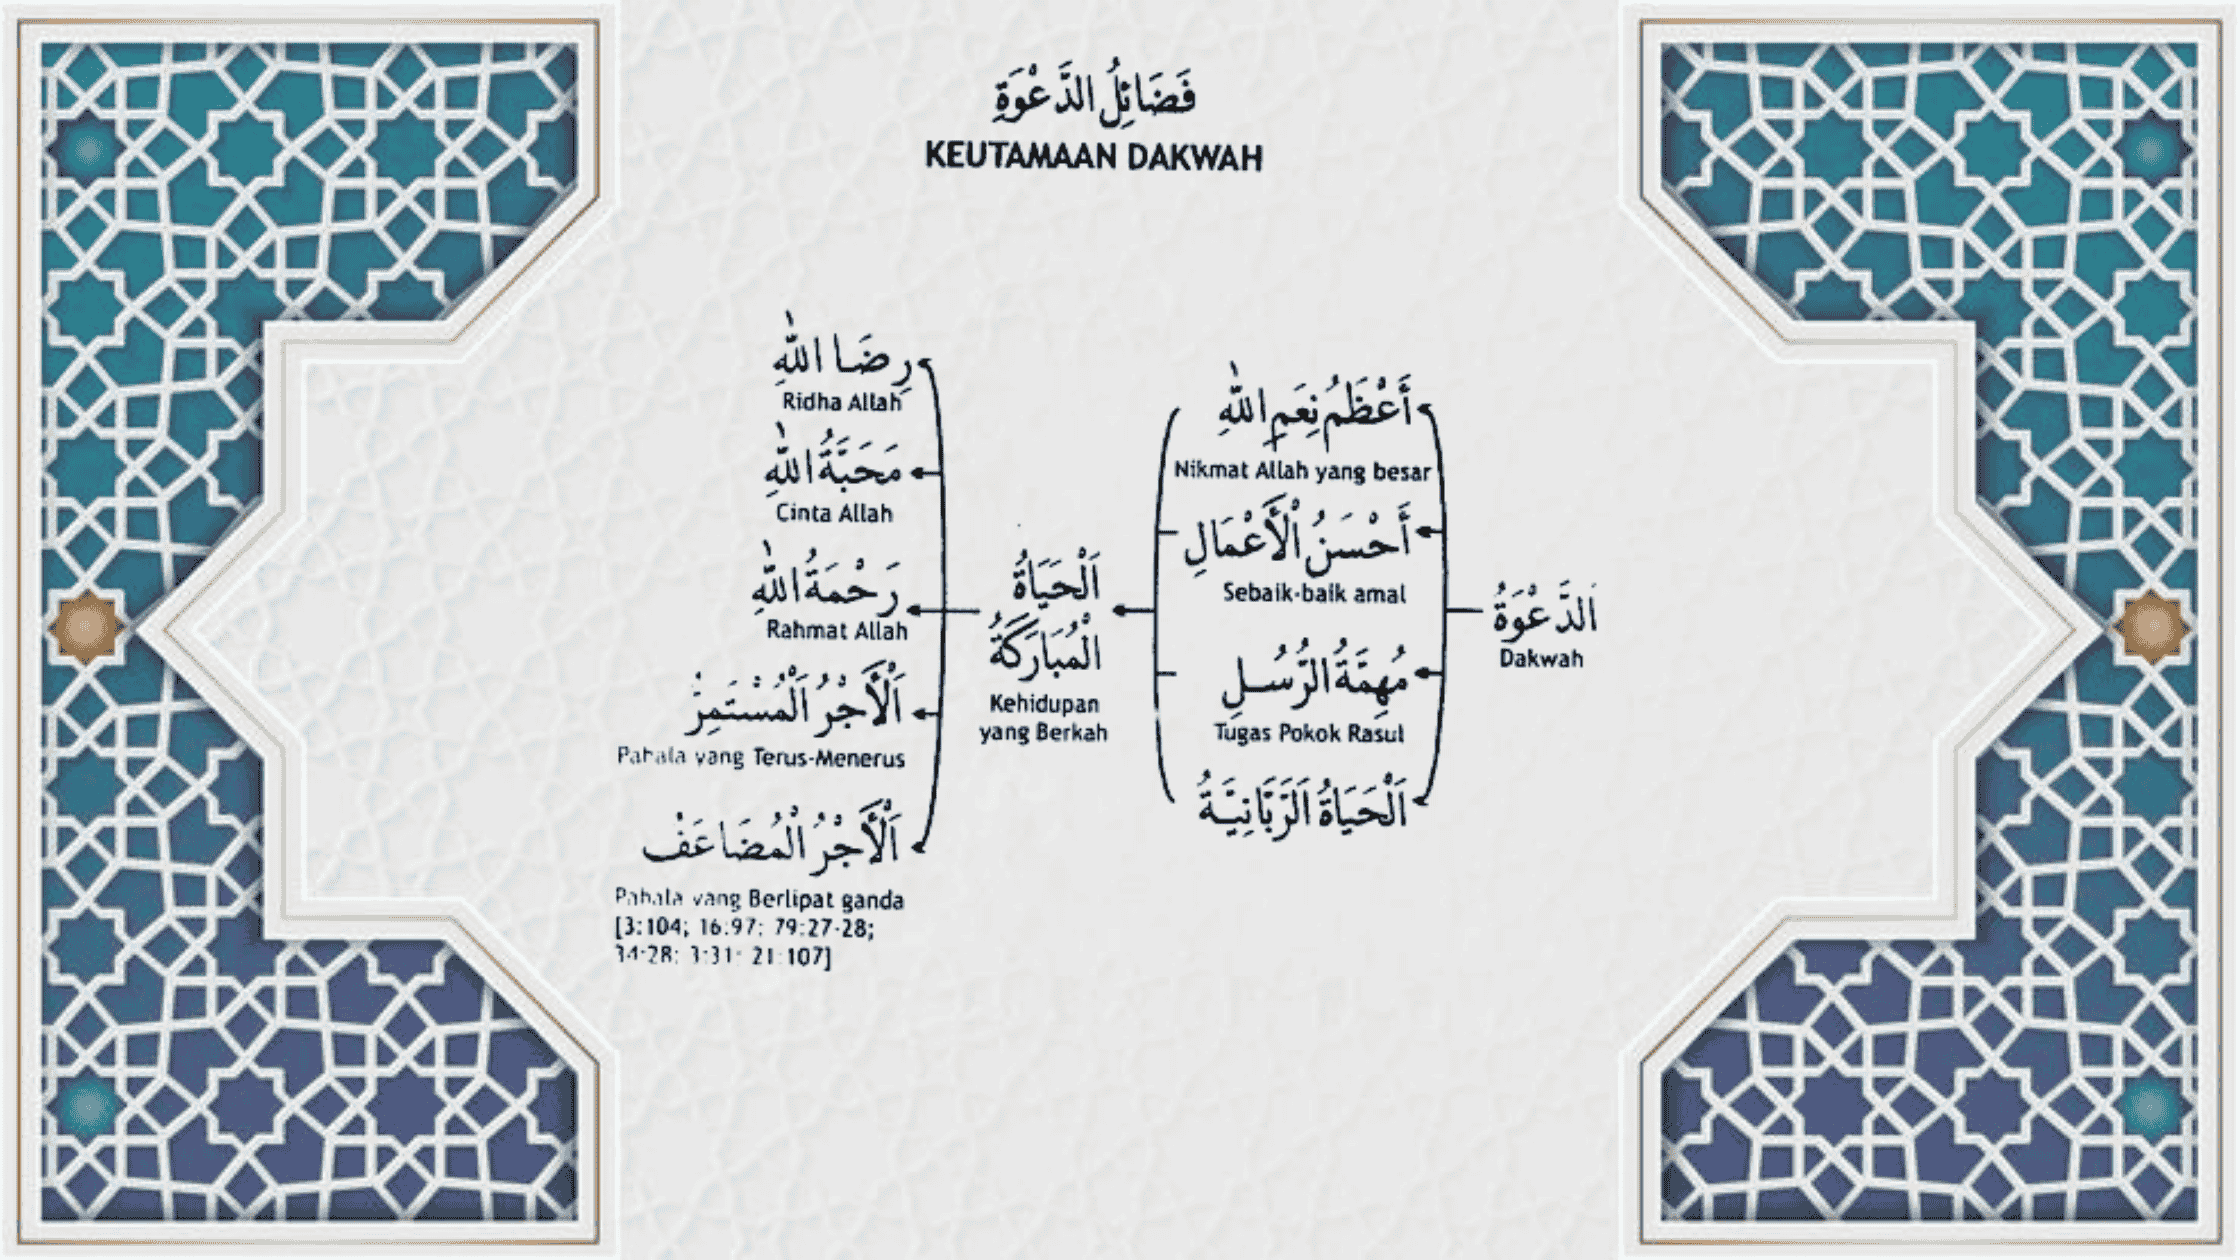 فَضَائِلُ الدَّعْوَةِ
KEUTAMAAN DAKWAH
اَلدَّعْوَةُ
Dakwah
أَعْظَمُ نِعَمِ اللّٰهِ
Nikmat Allah yang besar
أَحْسَنُ الْأَعْمَالِ
Sebaik-baik amal
مُهِمَّةُ الرُّسُلِ
Tugas Pokok Rasul
اَلْحَيَاةُ اَلرَّبَّانِيَّةُ
اَلْحَيَاةُ
الْمُبَارَكَةُ
Kehidupan
yang Berkah
رِضَا اللّٰهِ
Ridha Allah
مَحَبَّةُ اللّٰهِ
Cinta Allah
رَحْمَةُ اللّٰهِ
Rahmat Allah
اَلْأَجْرُ اَلْمُسْتَمِرُّ
Pahala yang Terus-Menerus
اَلْأَجْرُ الْمُضَاعَفْ
Pahala yang Berlipat ganda
[3:104; 16:97; 79:27-28;
34:28; 3:31; 21:107]